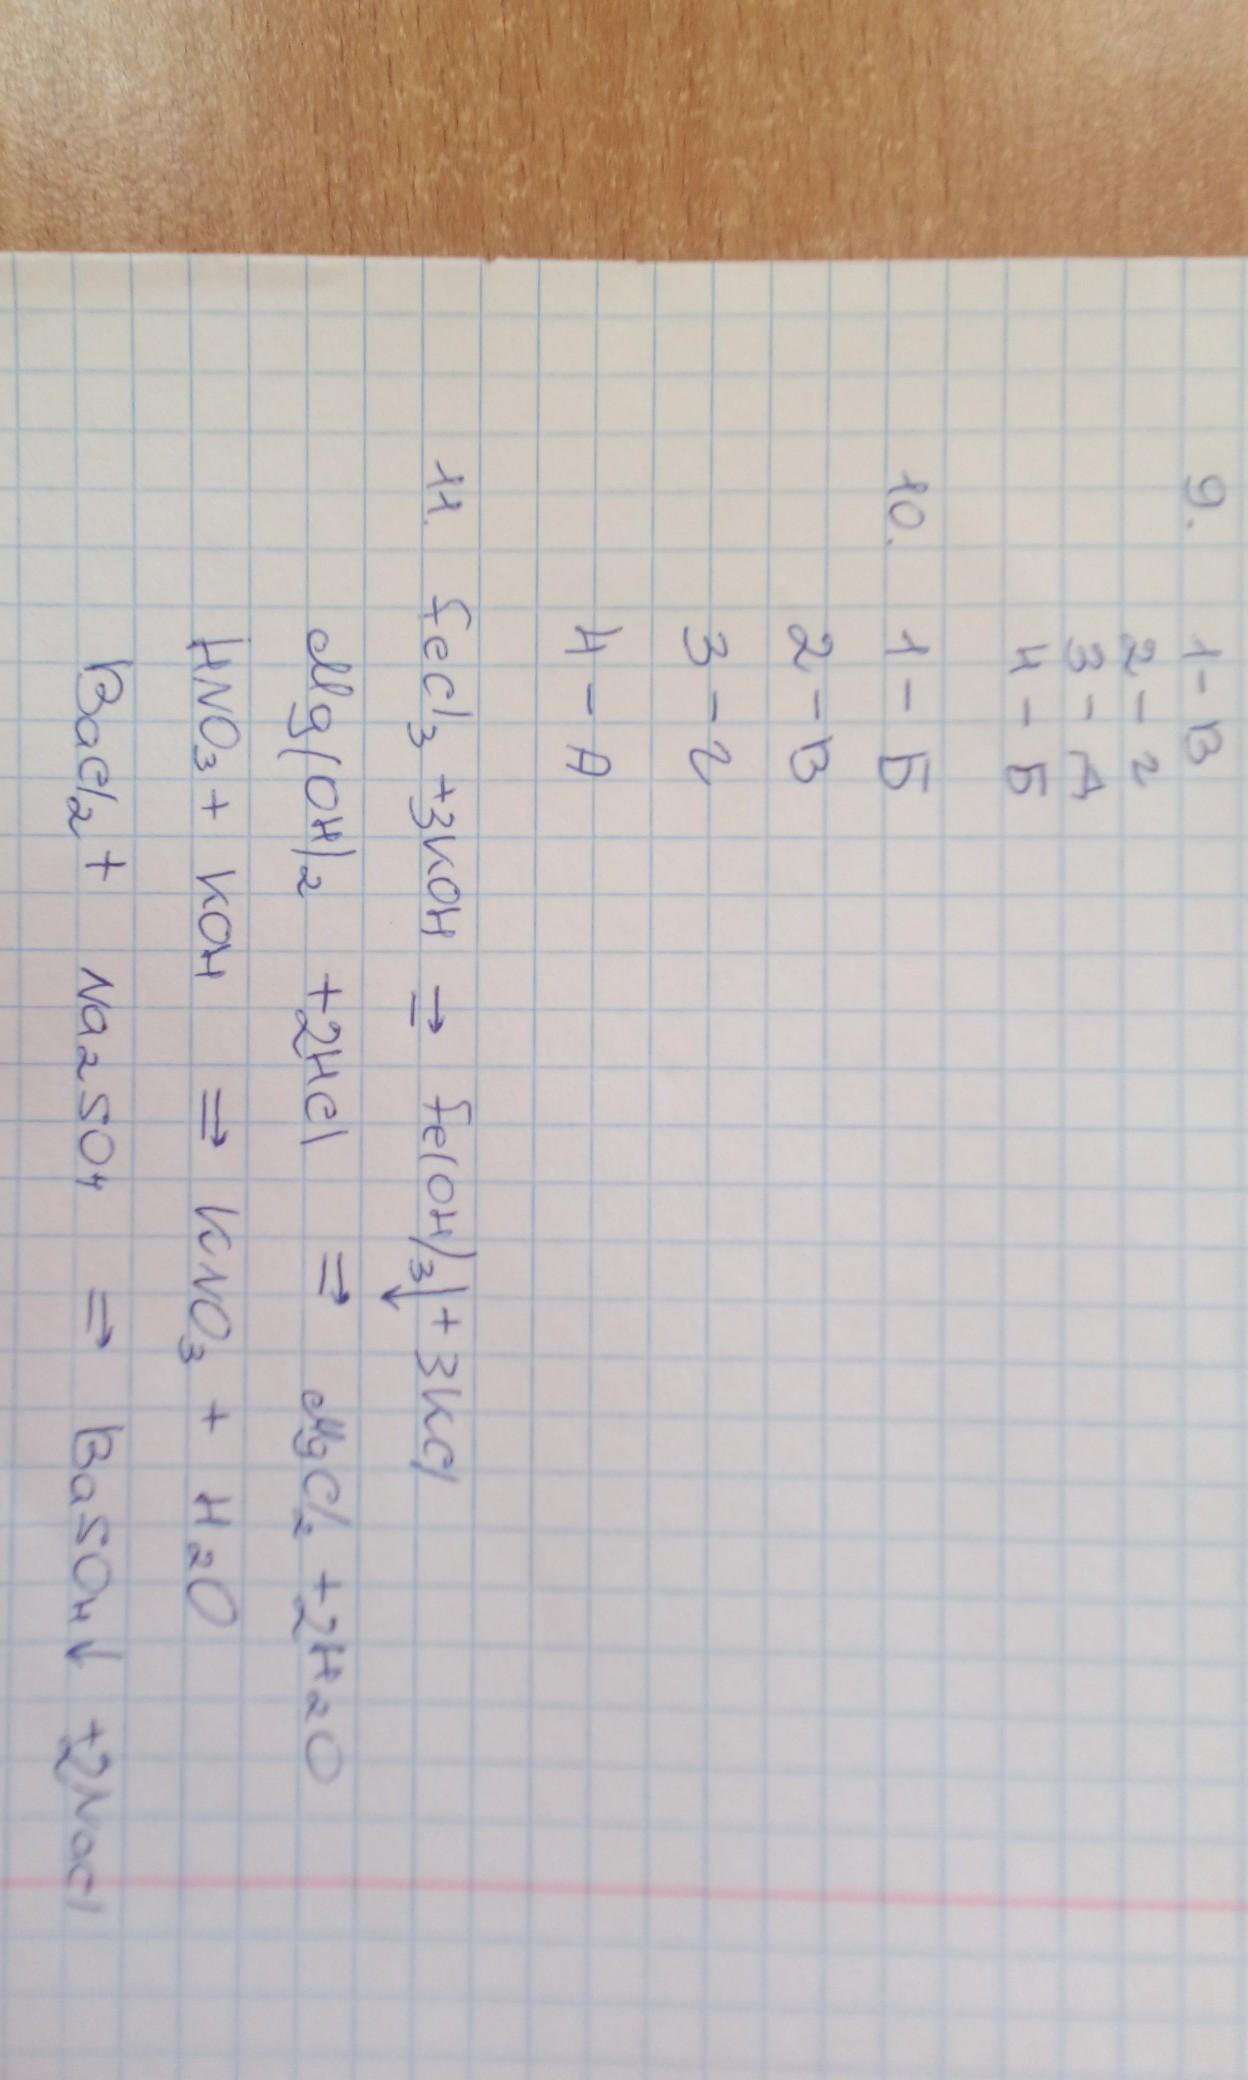 9. 1-В
2-г
3-А
4-Б
10. 1-Б
2-В
3-г
4-А
11. FeCl₃ +3KOH ⇒ Fe(OH)₃↓ + 3KCl
Mg(OH)₂ +2HCl ⇒ MgCl₂ +2H₂O
HNO₃ + KOH ⇒ KNO₃ + H₂O
BaCl₂ + Na₂SO₄ ⇒ BaSO₄↓ +2NaCl